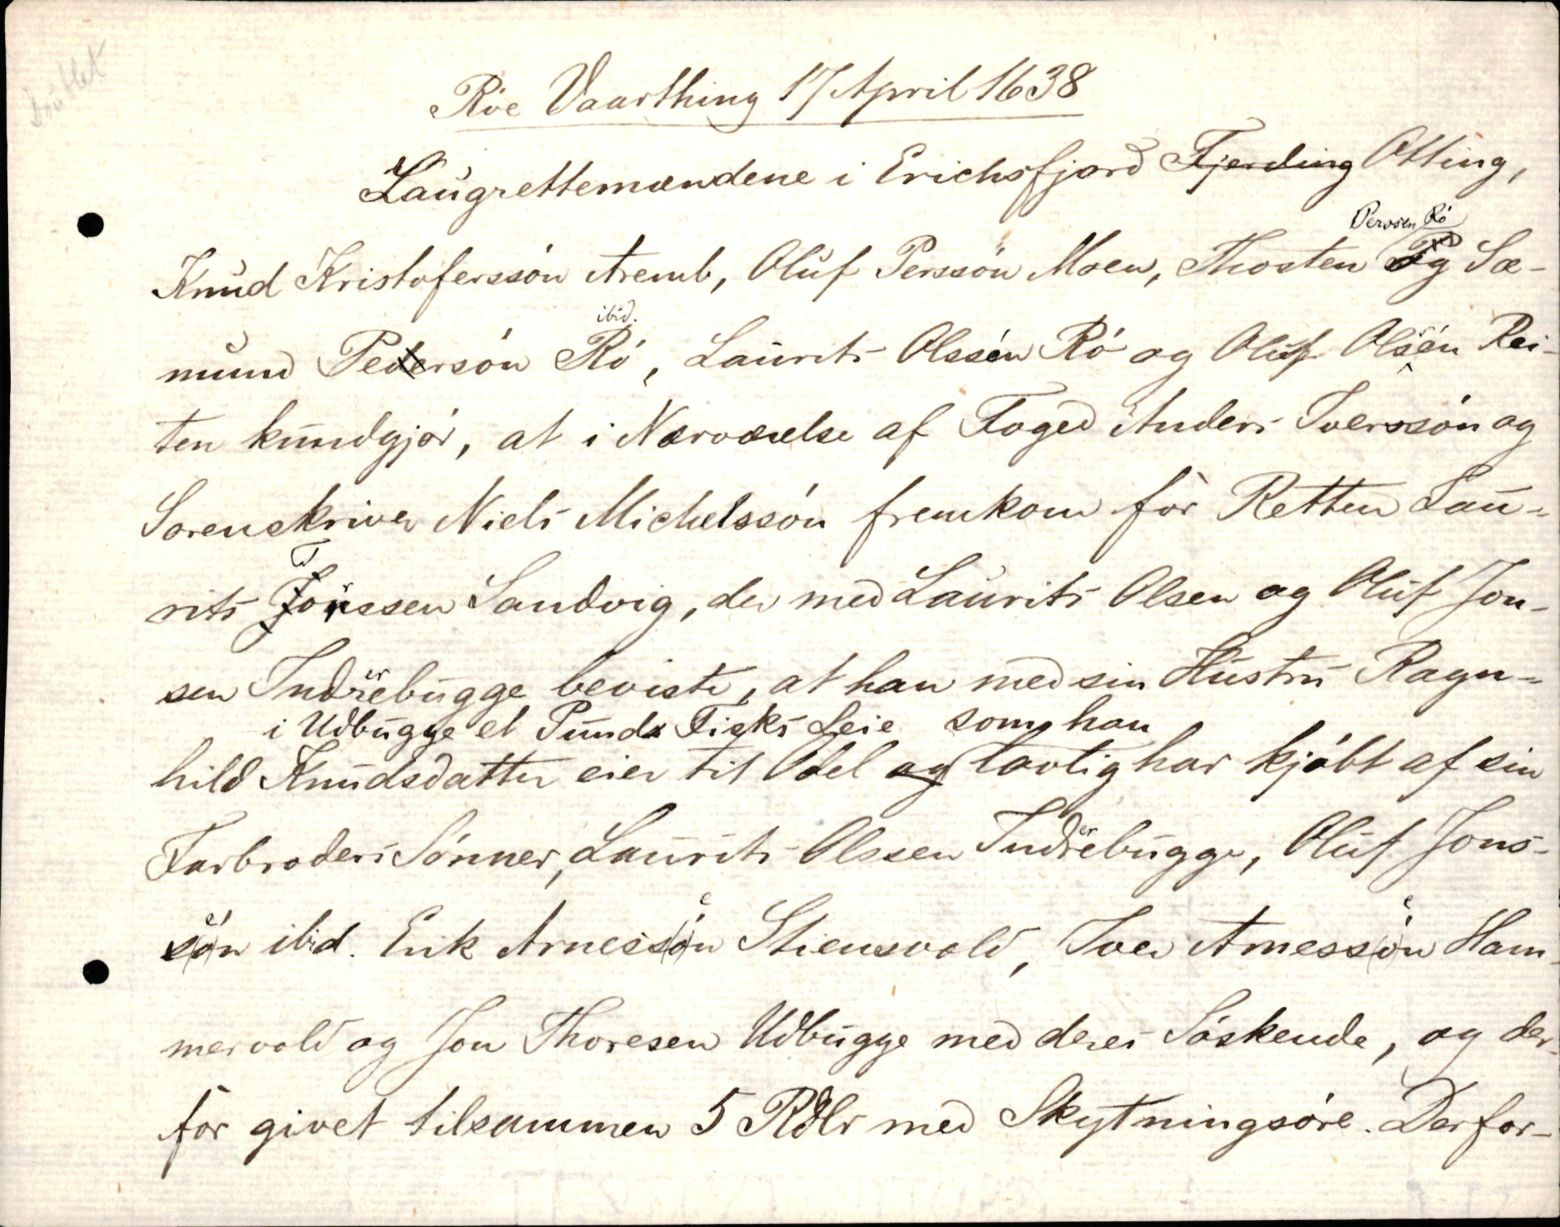 Doublet
Röe Vaarthing 17 April 1638
Laugrettemændene i Erichsfjord Fjerding Otting,
Perssen Rö
Knud Kristoferssön Aremb, Oluf Perssön Moen, Thosten og Sæ-
ibid.
mund Pedersön Rö, Laurits Olssön Rö og Oluf Olssen Rei-
ten kundgjör, at i Nærværelse af Foged Anders Iverssön og
Sorenskriver Niels Michelssön fremkom for Retten Lau-
rits Jonssen Sandvig, der med Laurits Olsen og Oluf Jon-
sen Indrebugge beviste, at han med sin Hustru Ragn-
i Udbugge et Punds Fisks Leie som han
hild Knudsdatter eier til Odel og lovlig har kjöbt af sin
Farbroders Sönner, Laurits Olssen Indrebugge, Oluf Jons-
sön ibid. Erik Arnessön Stiensvold, Iver Arnessön Ham-
mervold og Jon Thoresen Udbugge med deres Söskende, og der-
for givet tilsammen 5 Rdlr med Skytningsöre. Derfor-